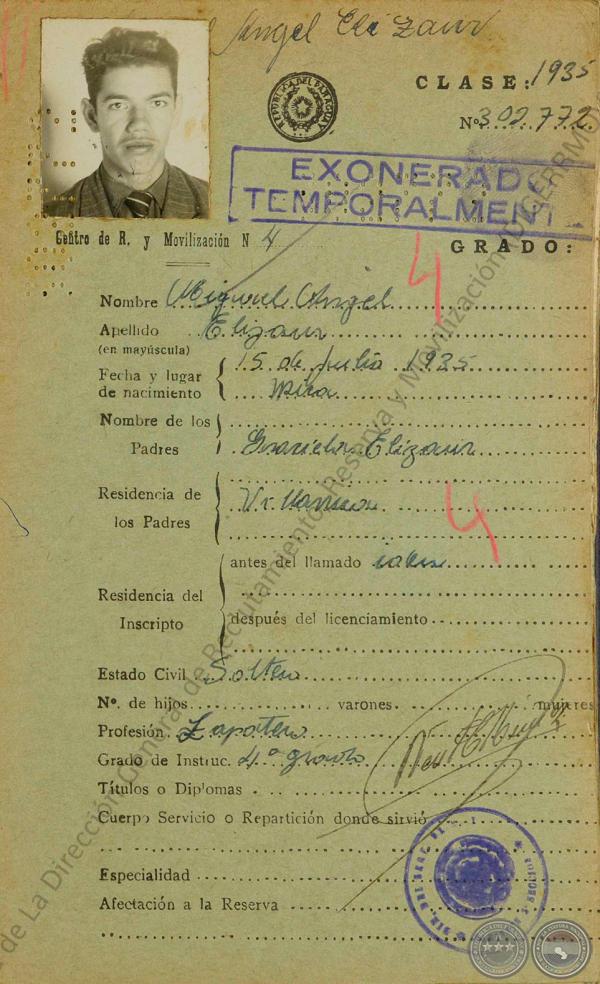 Angel Elizaur
REPUBLICA DEL PARAGUAY
CLASE: 1935
Nº 302.772
EXONERADO
TEMPORALMENT
Centro de R. y Movilización N 4
GRADO:
4
Nombre Miguel Angel
Apellido Elizaur
(en mayúscula)
Fecha y lugar de nacimiento 15 de Julio 1935
Nombre de los Padres Graciela Elizaur
Residencia de los Padres
4
Residencia del Inscripto antes del llamado
después del licenciamiento
Estado Civil Soltero
Nº. de hijos varones mujeres
Profesión Zapatero
Grado de Instruc. 4º grado
Títulos o Diplomas
Cuerpo Servicio o Repartición donde sirvió
Especialidad
Afectación a la Reserva
de La Dirección General de Reclutamiento, Reserva y Movilización